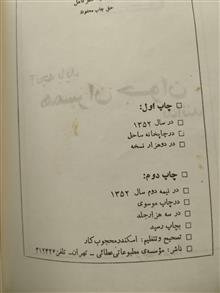 حق چاپ محفوظ
چاپ اول:
در سال ۱۳۵۲
در چاپخانه ساحل
در دوهزار نسخه
چاپ دوم:
در نیمه دوم سال ۱۳۵۲
در چاپ موسوی
در سه هزار جلد
بچاپ رسید
تصحیح و تنظیم: اسکندر محجوب کار
ناشر: مؤسسه‌ی مطبوعاتی عطائی - تهران - تلفن ۳۱۲۴۲۶